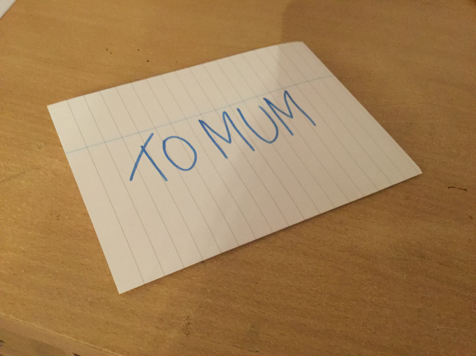 TO MUM